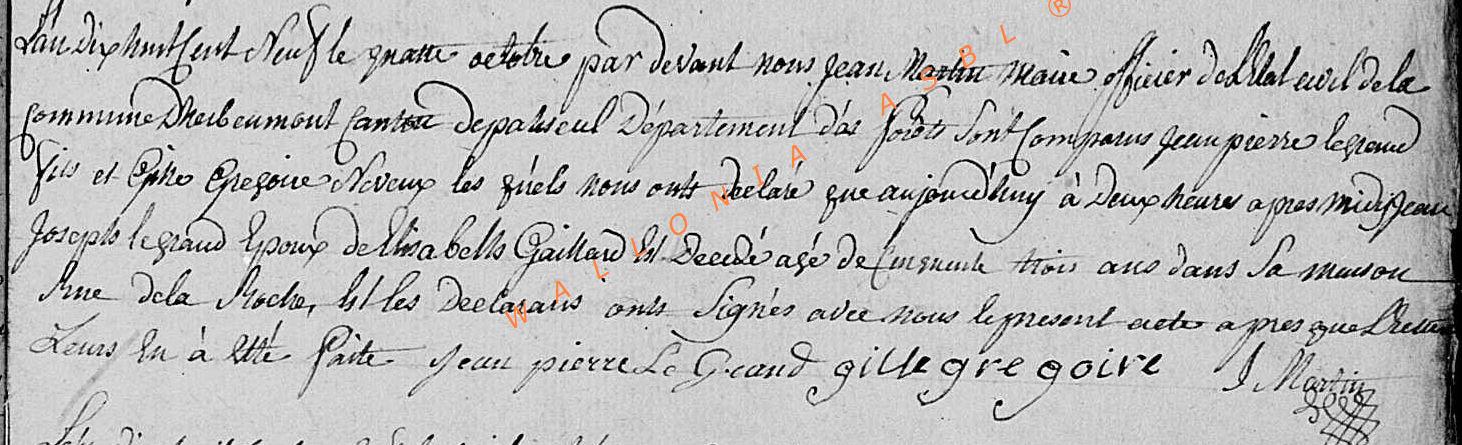 L'an Dix huit Cent Neuf le quatre octobre par devant nous Jean Martin Maire officier de L'Etat civil de la
Commune D'herbeumont Canton de paliseul Département dés forêts Sont Comparus Jean pierre legrand
fils et Gille Gregoire Neveux les quels nous onts declaré que aujourd'huy à Deux heures apres midy Jean
Joseph legrand Epoux de Elisabeth Gaillard Est Decedé agé de Cinquante trois ans dans Sa maison
Rue de la Roche, Et les Declarans onts Signés avec nous le present acte apres que Lecture
Leurs En à Eté faite Jean pierre Le Grand gille gregoire J Martin
WALLONIA ASBL ®